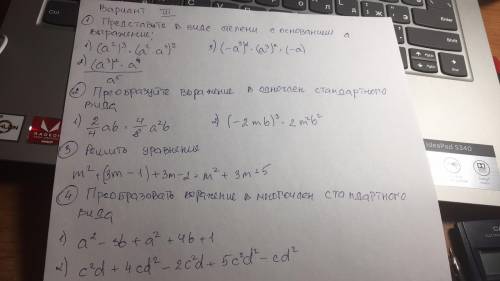 Вариант III
① Представьте в виде степени с основанием a
выражение:
1) (a²)³ · (a² · a⁴)² 3) (-a³)² · (a³)² · (-a)
2) (a³)² · a⁴ / a⁵
② Преобразуйте выражение в одночлен стандартного
вида
1) 2/4 ab · 4/8 a²b 2) (-2mb)³ · 2m²b²
③ Решить уравнения
m² + (3m - 1) + 3m - 2 = m² + 3m = 5
④ Преобразовать выражение в многочлен стандартного
вида
1) a² - 3b + a² + 4b + 1
2) c²d + 4cd² - 2c²d + 5c²d² - cd²
RYZEN
AMD
RADEON
GRAPHICS
IdeaPad S340